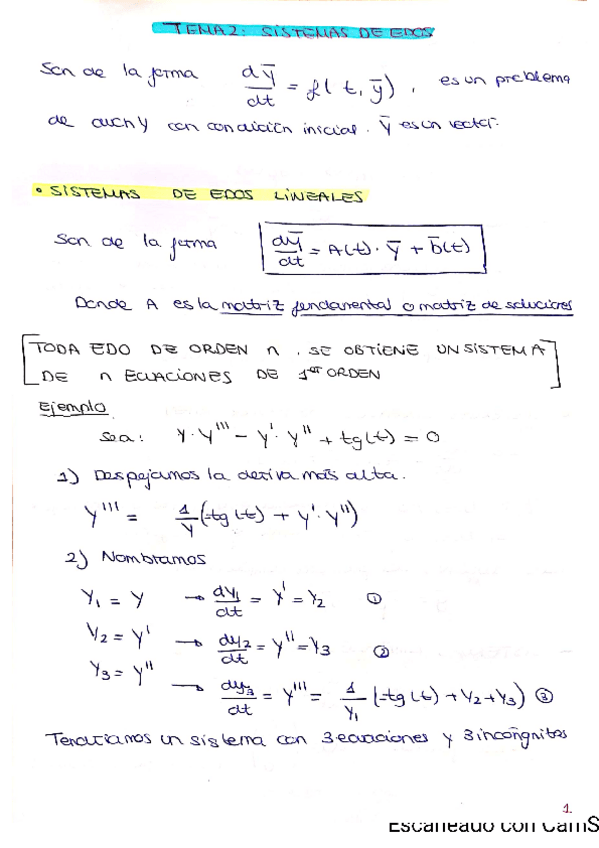 TEMA 2: SISTEMAS DE EDOS
Son de la forma dȳ/dt = f(t, ȳ), es un problema
de cauchy con condición inicial. ȳ es un vector.
• SISTEMAS DE EDOS LINEALES
Son de la forma dȳ/dt = A(t)·ȳ + b̄(t)
Donde A es la matriz fundamental o matriz de soluciones
TODA EDO DE ORDEN n, SE OBTIENE UN SISTEMA
DE n ECUACIONES DE 1er ORDEN
Ejemplo
sea: y·y''' - y'·y'' + tg(t) = 0
1) Despejamos la deriva más alta.
y''' = 1/y (-tg(t) + y'·y'')
2) Nombramos
y₁ = y → dy₁/dt = y' = y₂ ①
y₂ = y' → dy₂/dt = y'' = y₃ ②
y₃ = y'' → dy₃/dt = y''' = 1/y₁ (-tg(t) + y₂+y₃) ③
Tendríamos un sistema con 3 ecuaciones y 3 incógnitas
1.
Escaneado con CamS